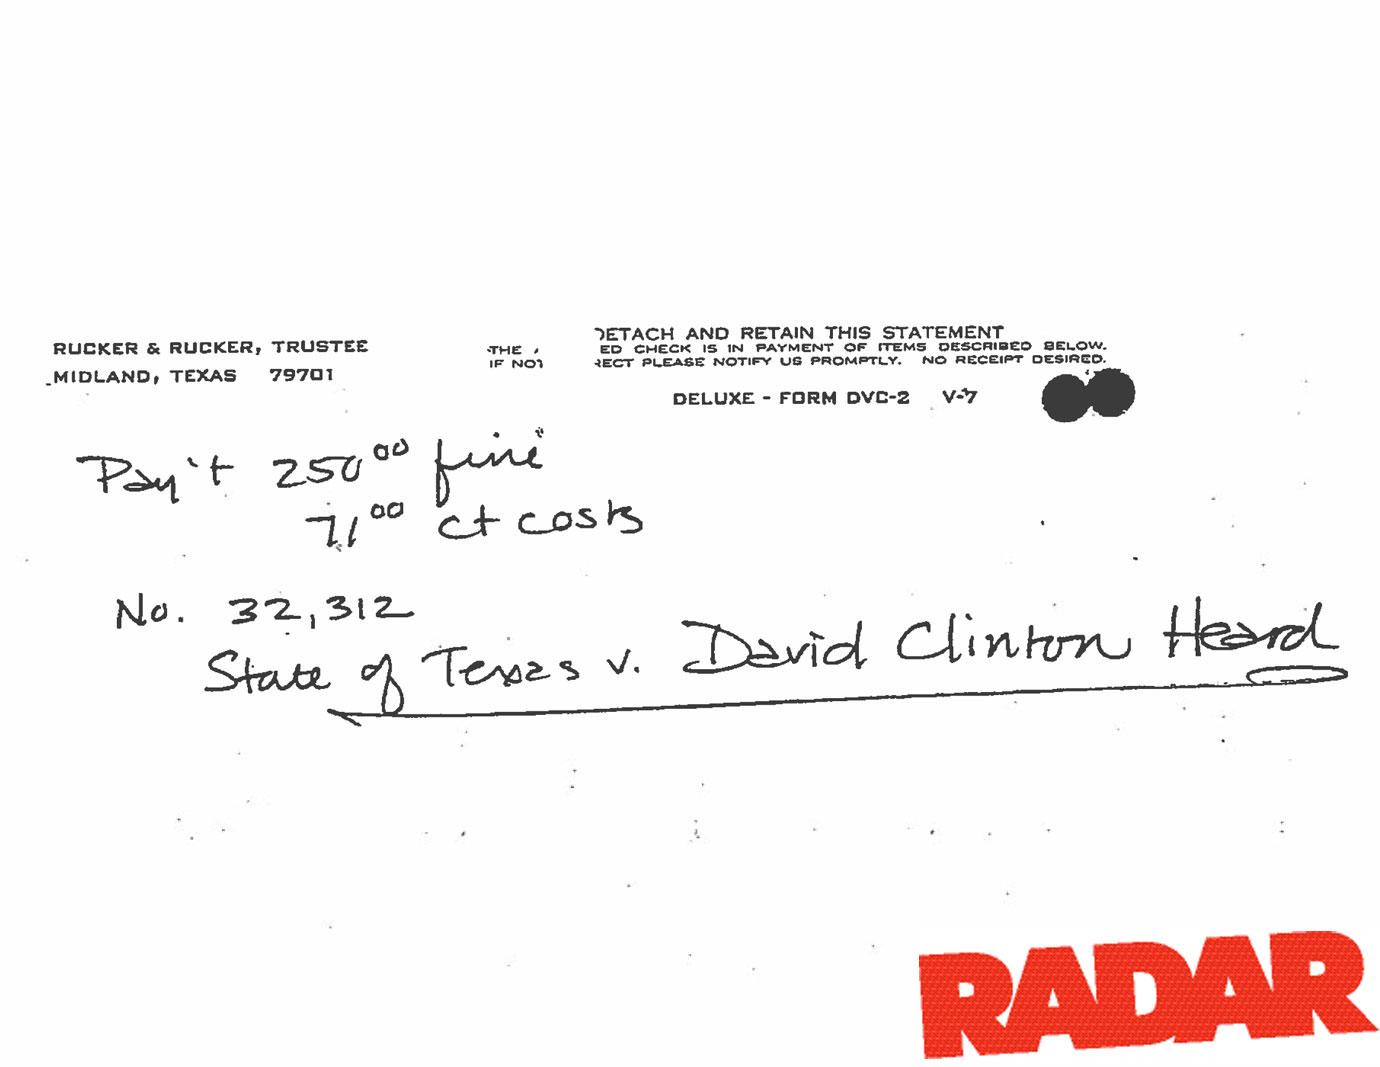 RUCKER & RUCKER, TRUSTEE
MIDLAND, TEXAS 79701
DETACH AND RETAIN THIS STATEMENT
THE ED CHECK IS IN PAYMENT OF ITEMS DESCRIBED BELOW.
IF NOT RECT PLEASE NOTIFY US PROMPTLY. NO RECEIPT DESIRED.
DELUXE - FORM DVC-2 V-7
Pay't 250.00 fine
71.00 ct costs
No. 32,312
State of Texas v. David Clinton Heard
RADAR